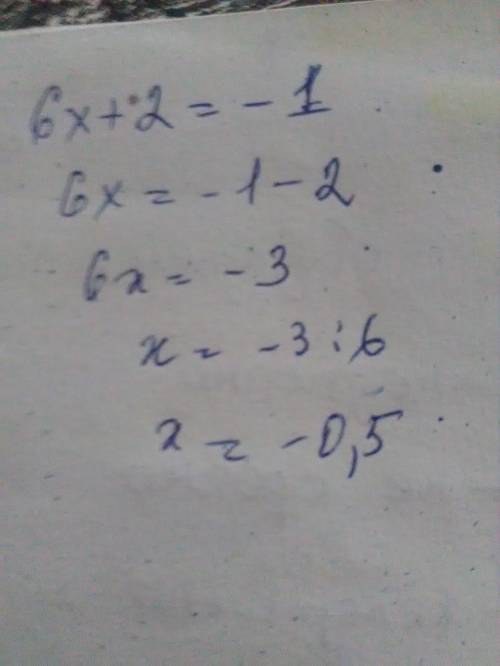 6x+2=-1
6x=-1-2
6x=-3
x=-3:6
x=-0,5